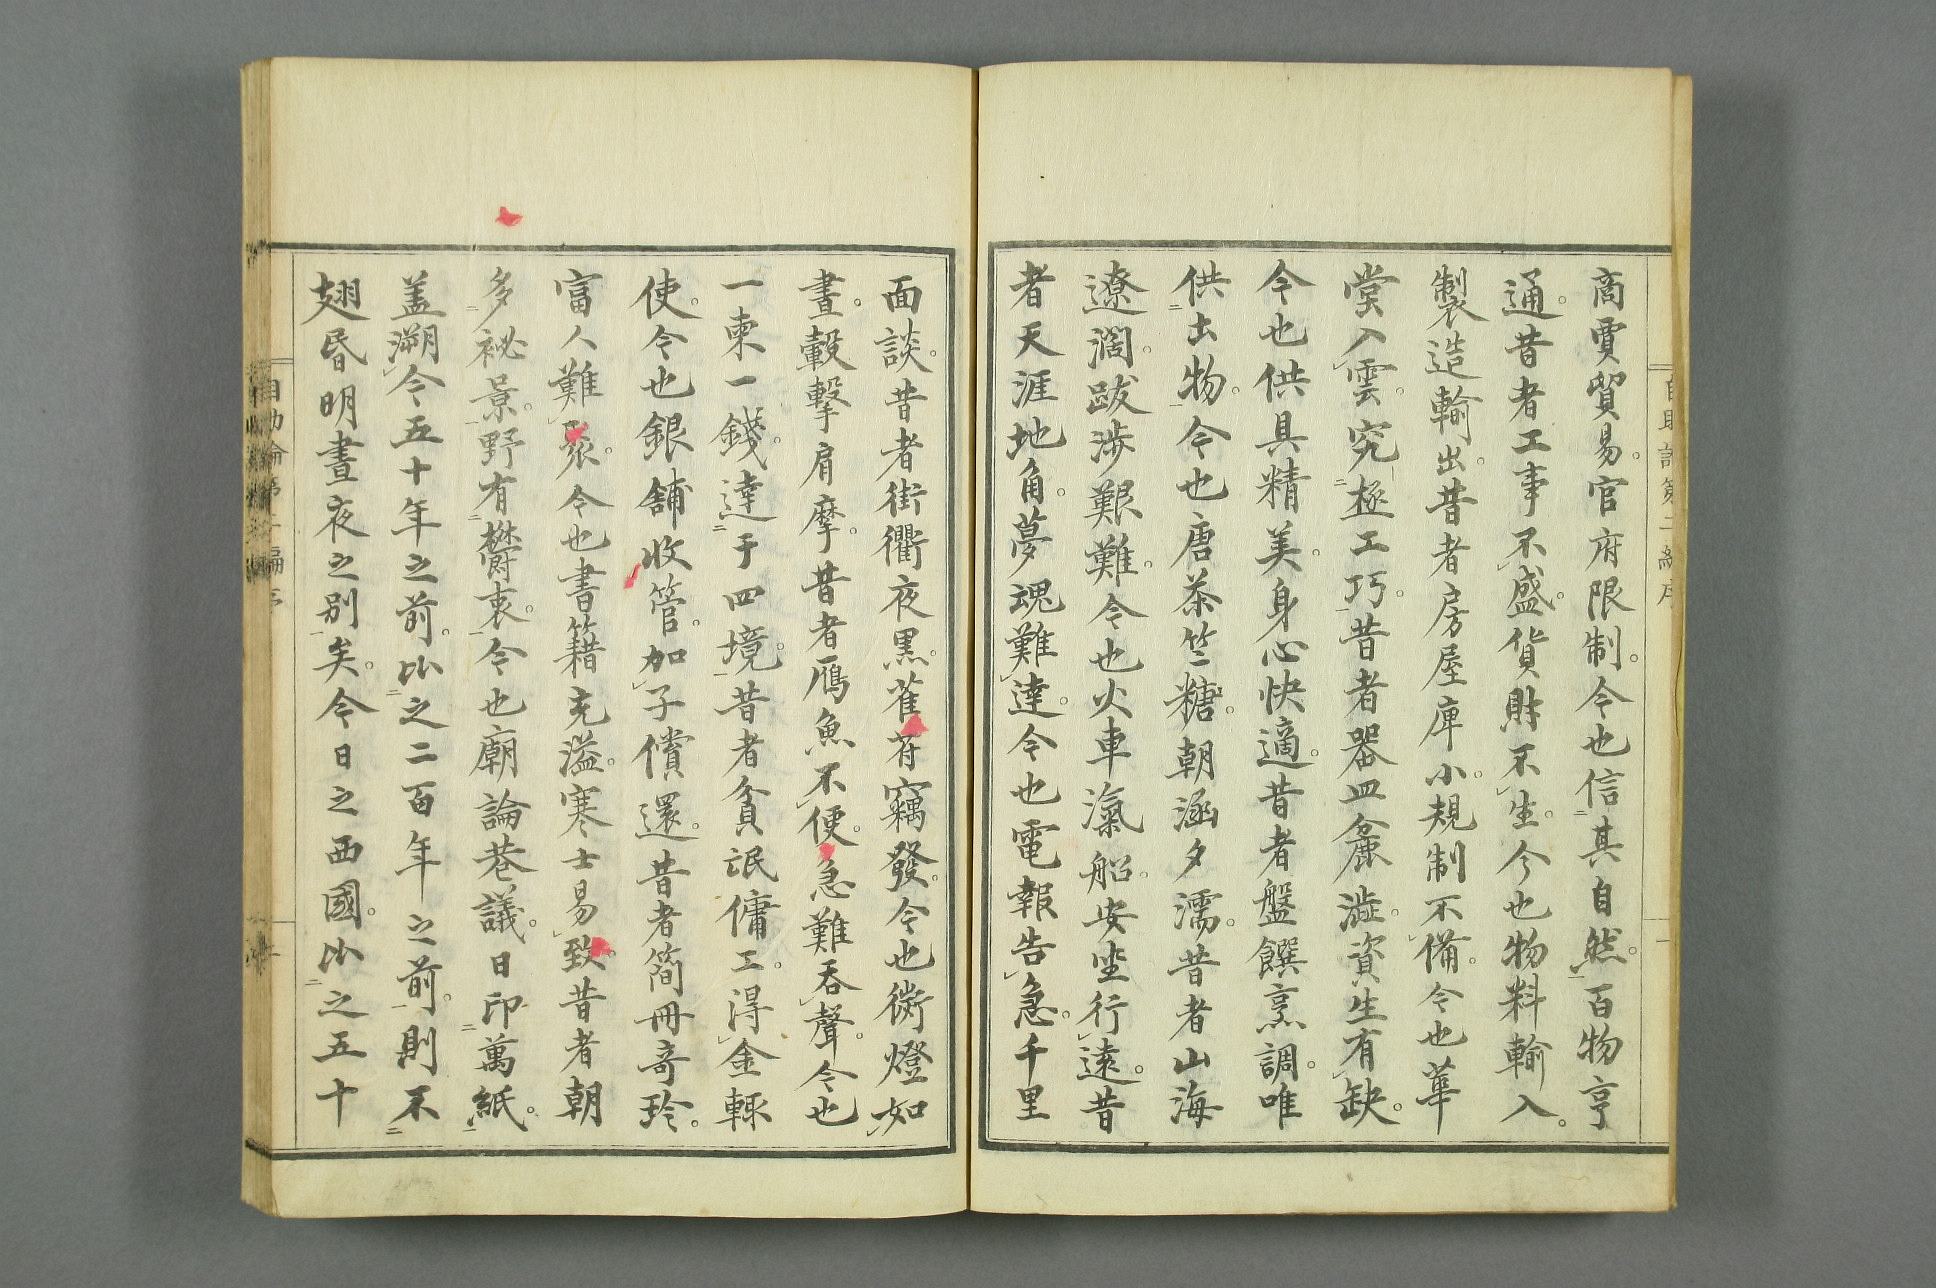 商賈貿易。官府限制。今也信其自然。百物亨
通。昔者工事不盛。貨財不生。今也物料輸入。
製造輸出。昔者房屋庫小。規制不備。今也華
堂入雲。究極工巧。昔者器皿麁澁。資生有缺。
今也供具精美。身心快適。昔者盤饌烹調。唯
供土物。今也唐茶竺糖。朝涵夕濡。昔者山海
遼濶。跋涉艱難。今也火車滊船。安坐行遠。昔
者天涯地角。夢魂難達。今也電報告急。千里
面談。昔者街衢夜黒。萑苻竊發。今也街燈如
晝。轂擊肩摩。昔者鴈魚不便。急難吞聲。今也
一柬一錢。達于四境。昔者貧氓傭工。得金輙
使。今也銀舖收管。加子償還。昔者簡冊奇珍。
富人難聚。今也書籍充溢。寒士易致。昔者朝
多祕景。野有欝衷。今也廟論巷議。日印萬紙。
盖溯今五十年之前。比之二百年之前。則不
翅昏明晝夜之別矣。今日之西國。比之五十